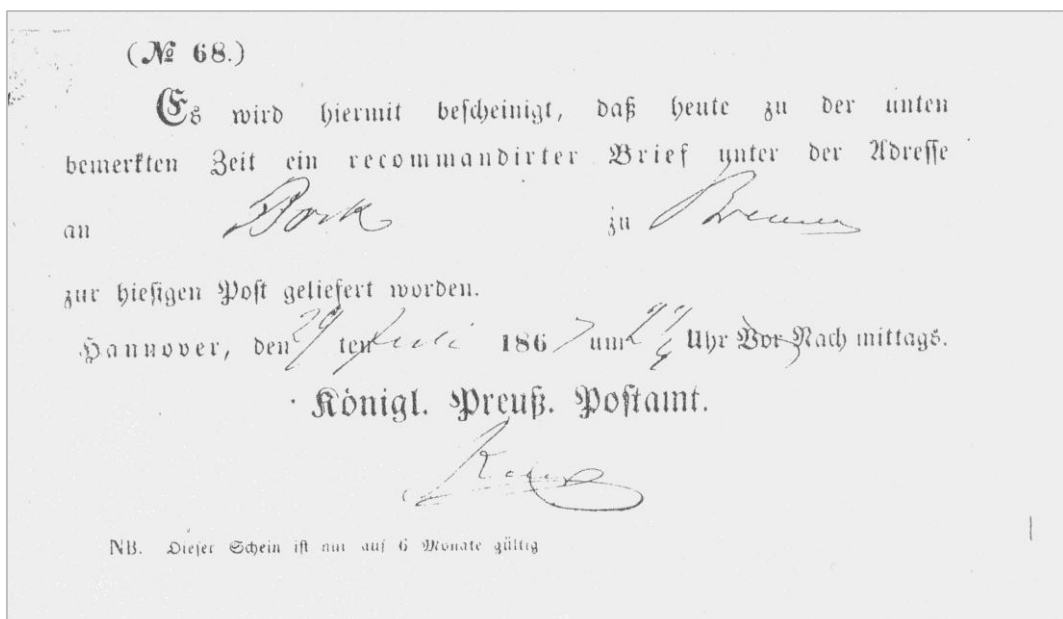 (№ 68.)
Es wird hiermit bescheinigt, daß heute zu der unten
bemerkten Zeit ein recommandirter Brief unter der Adresse
an Bork zu Bremen
zur hiesigen Post geliefert worden.
Hannover, den 29 ten Juli 1867 um 2 1/4 Uhr Vor Nach mittags.
Königl. Preuß. Postamt.
NB. Dieser Schein ist nur auf 6 Monate gültig